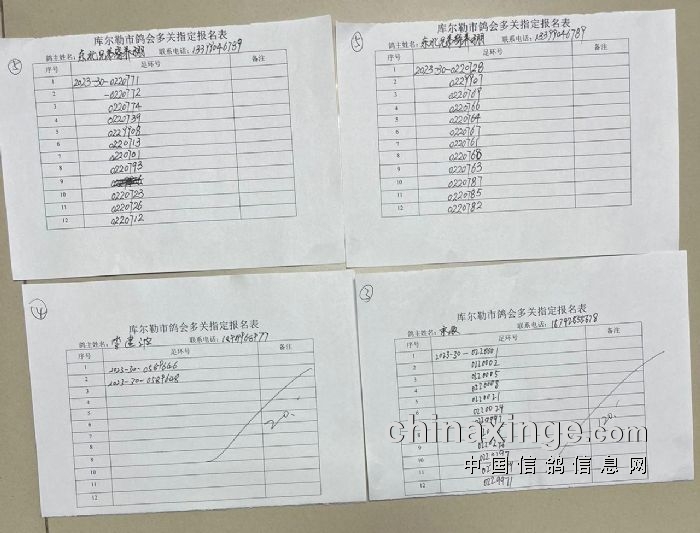 ②
库尔勒市鸽会多关指定报名表
鸽主姓名: 联系电话: 13399046789
序号 足环号 备注
1 2023-30-0220771
2 -0220772
3 0220774
4 0220739
5 0229908
6 0220713
7 0220701
8 0220793
9
10 0220723
11 0220726
12 0220712
库尔勒市鸽会多关指定报名表
鸽主姓名: 联系电话: 13399046789
序号 足环号 备注
1 2023-30-0220728
2 0229907
3 0220769
4 0220766
5 0220764
6 0220767
7 0220761
8 0220768
9 0220763
10 0220787
11 0220785
12 0220782
④
库尔勒市鸽会多关指定报名表
鸽主姓名: 联系电话:
序号 足环号 备注
1 2023-30-0589646
2 2023-30-0589648
3
4
5
6
7
8
9
10
11
12
20.
③
库尔勒市鸽会多关指定报名表
鸽主姓名: 联系电话:
序号 足环号 备注
1 2023-30-0220001
2 0220002
3 0220005
4 0220008
5 0220021
6 0220029
10 0220297
11
12 0229911
20.
chinaxinge.com
中国信鸽信息网